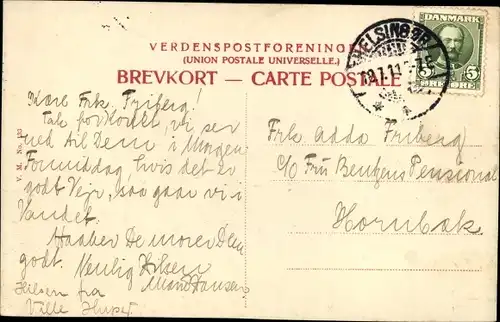 VERDENSPOSTFORENINGEN
(UNION POSTALE UNIVERSELLE.)
BREVKORT — CARTE POSTALE
HELSINGØR
12.7.11
DANMARK
5 5
ØRE ØRE
Kære Frk. Friberg!
Tak for Kortet, vi ser
ned til Dem i Morgen
Formiddag, hvis det er
godt Vejr, saa gaar vi i
Vandet.
Haaber De morer Dem
godt. Venlig Hilsen
Hansen
Hilsen fra
Ville
Frk. Adda Friberg
c/o Fru Bentzens Pensionat
Hornbæk